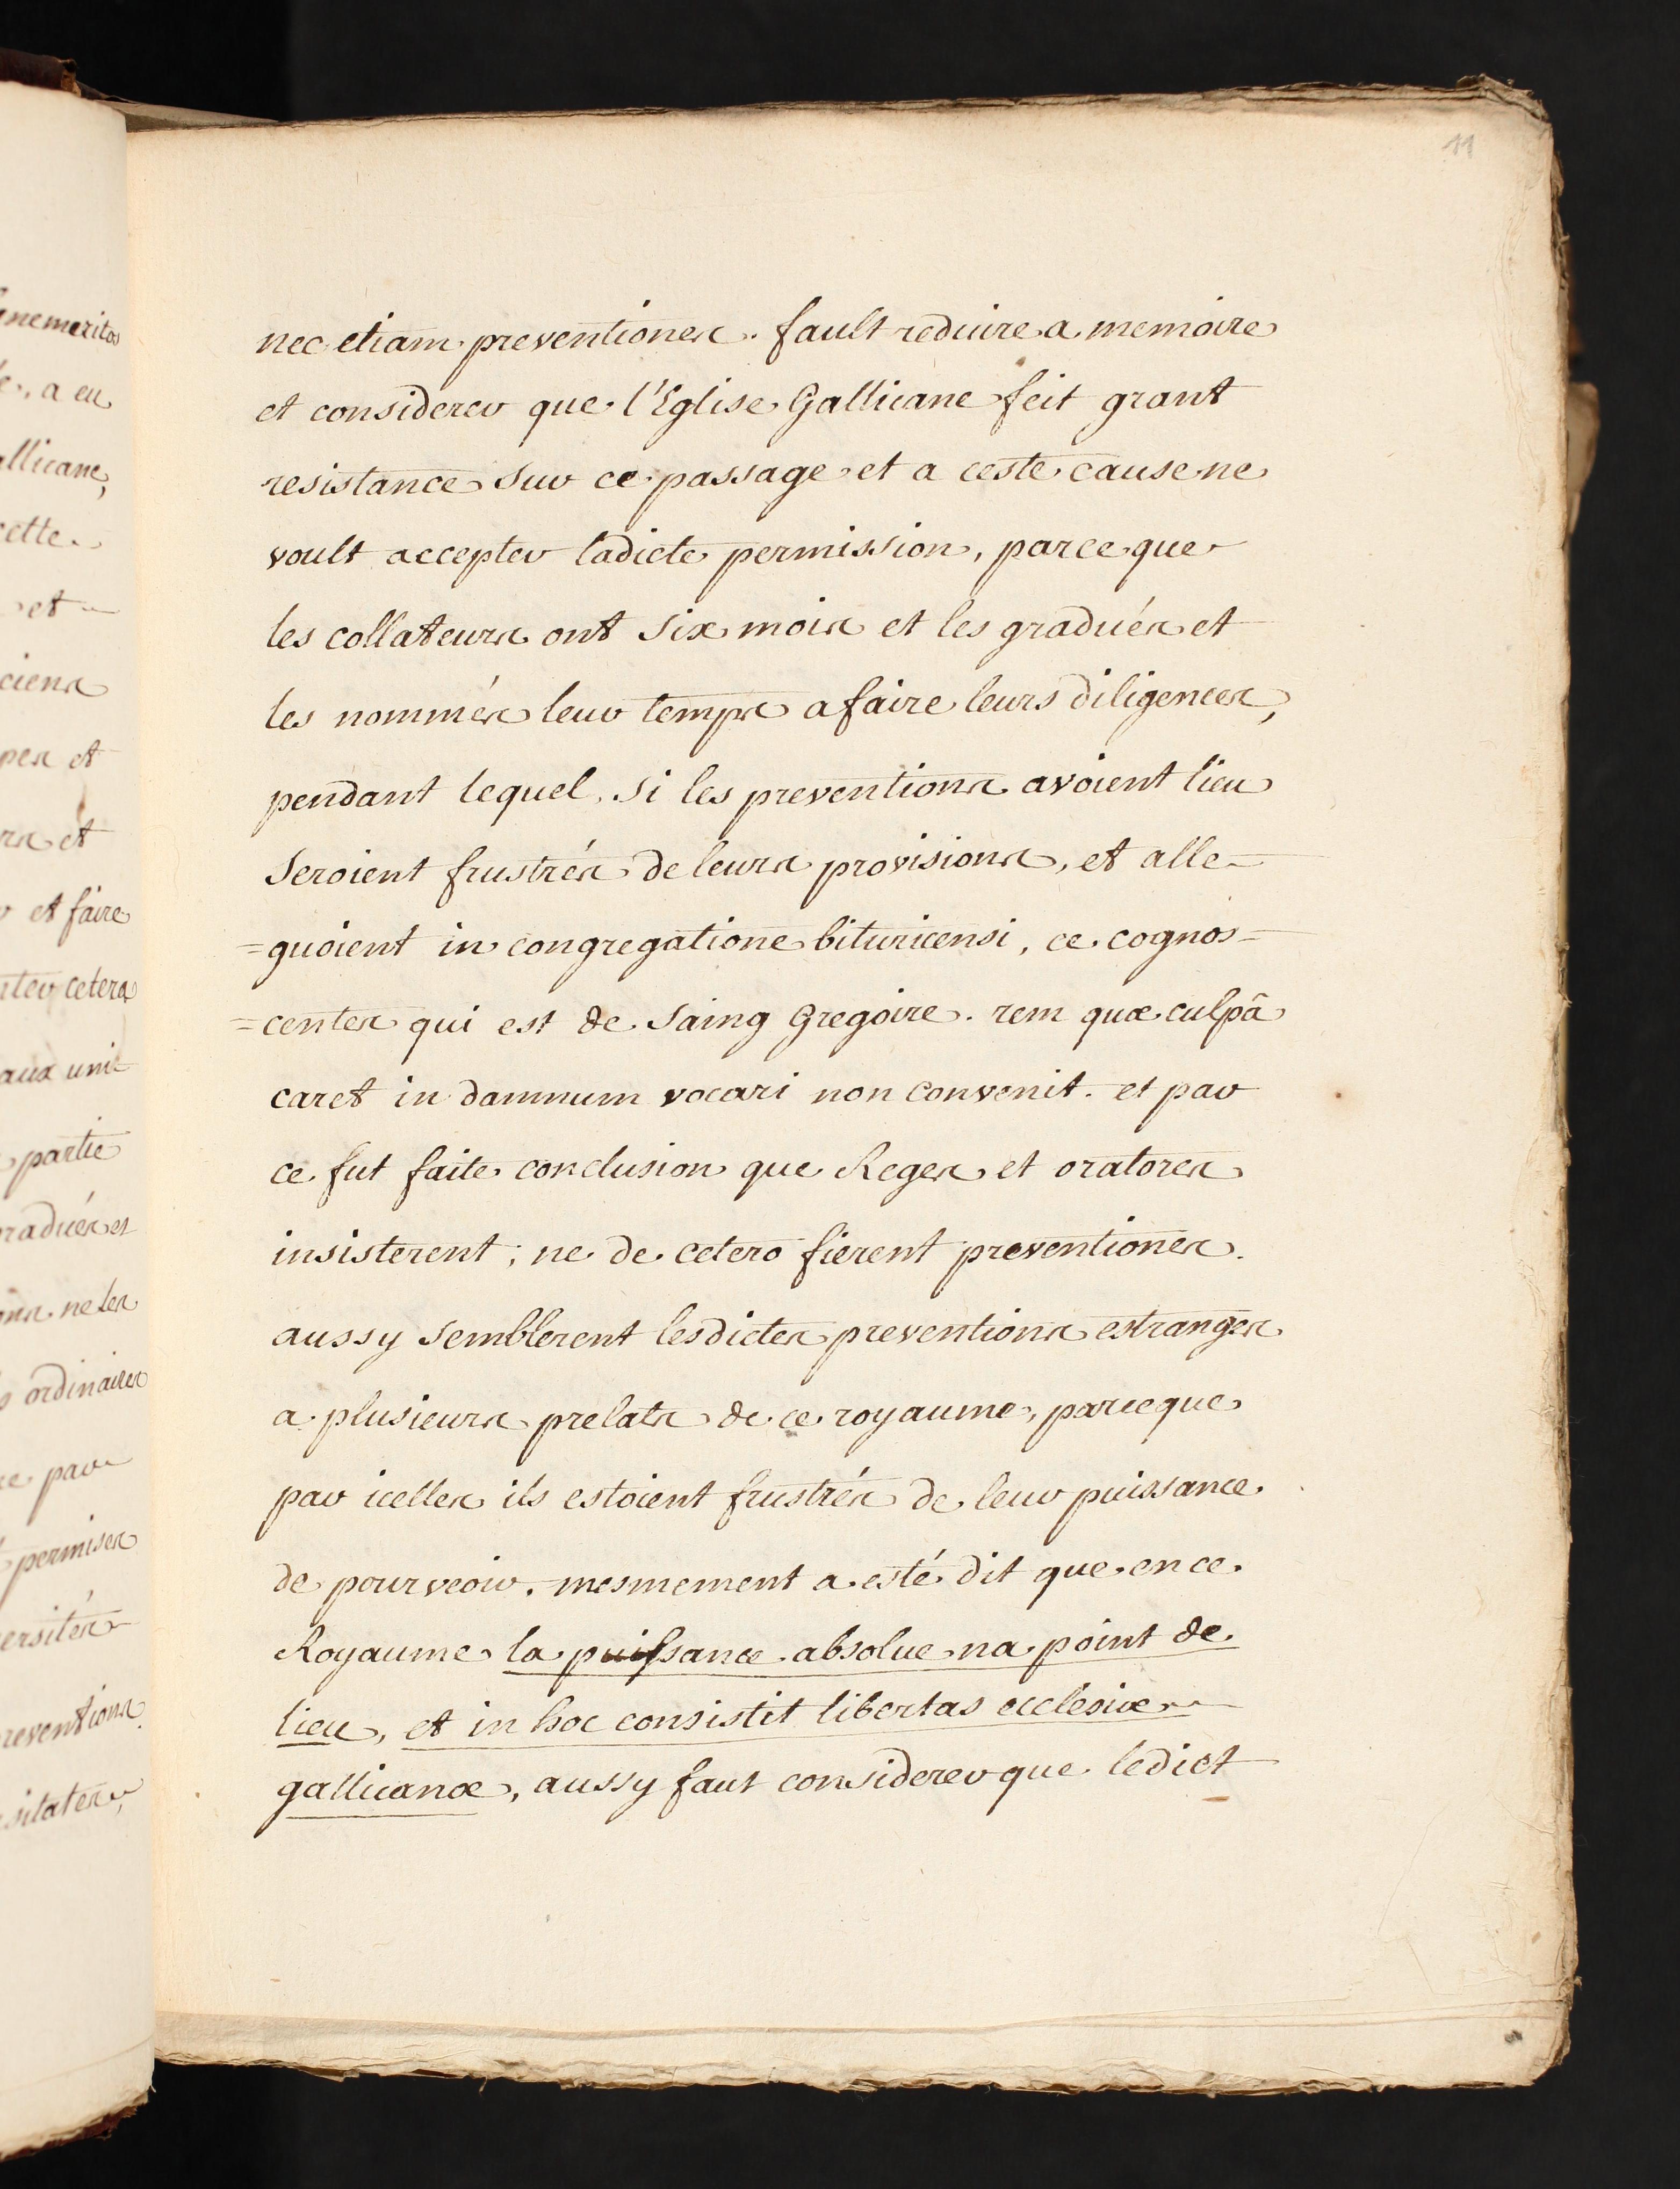 11
nec etiam preventiones. fault reduire a memoire
et considerer que l'Eglise Gallicane feit grant
resistance sur ce passage et a ceste cause ne
voult accepter ladicte permission, parce que
les collateurs ont six mois et les gradués et
les nommés leur temps a faire leurs diligences,
pendant lequel, si les preventions avoient lieu
seroient frustrés de leurs provisions, et alle-
=guoient in congregatione bituricensi, ce cognos=
=centes qui est de saing Gregoire. rem quæ culpâ
caret in damnum vocari non convenit. et par
ce fut faite conclusion que Reges et oratores
insisterent; ne de cetero fierent preventiones.
aussy semblerent lesdictes preventions estranges
a plusieurs prelats de ce royaume, parceque
par icelles ils estoient frustrés de leur puissance
de pourveoir. mesmement a esté dit que en ce
Royaume la puissance absolue na point de
lieu, et in hoc consistit libertas ecclesiæ
gallicanæ, aussy faut considerer que ledict
enemeritos
a eu
allicane,
cette
et
ciens
pes et
rs et
et faire
cetera
aux uni-
partie
radués et
ne les
ordinaires
par
permises
ersités
reventions
sitates,